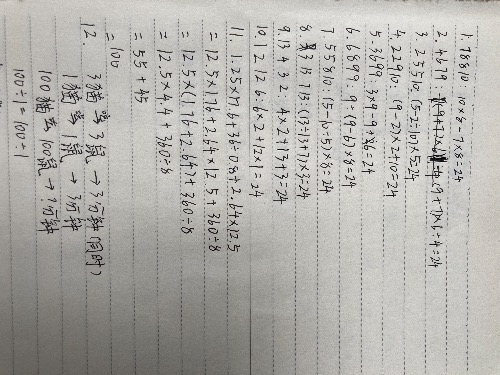 1. 7 8 8 10 10×8-7×8=24
2. 4 6 7 9 (9+7)×6÷4=24
3. 2 5 5 10 (5-2÷10)×5=24
4. 2 2 9 10 (9-2)×2+10=24
5. 3 6 9 9 3×9-9+6=24
6. 6 8 9 9 9÷(9-6)×8=24
7. 5 5 8 10 (5-10÷5)×8=24
8. 3 7 13 13 (13÷13+7)×3=24
9. 13 4 3 2 4×2+13+3=24
10. 1 2 12 6 6×2+12×1=24
11. 1.25×17.6+36÷0.8+2.64×12.5
=12.5×1.76+2.64×12.5+360÷8
=12.5×(1.76+2.64)+360÷8
=12.5×4.4+360÷8
=55+45
=100
12. 3猫 3鼠→3分钟(同时)
1猫 1鼠→3分钟
100猫 100鼠→3分钟
100÷1=100÷1